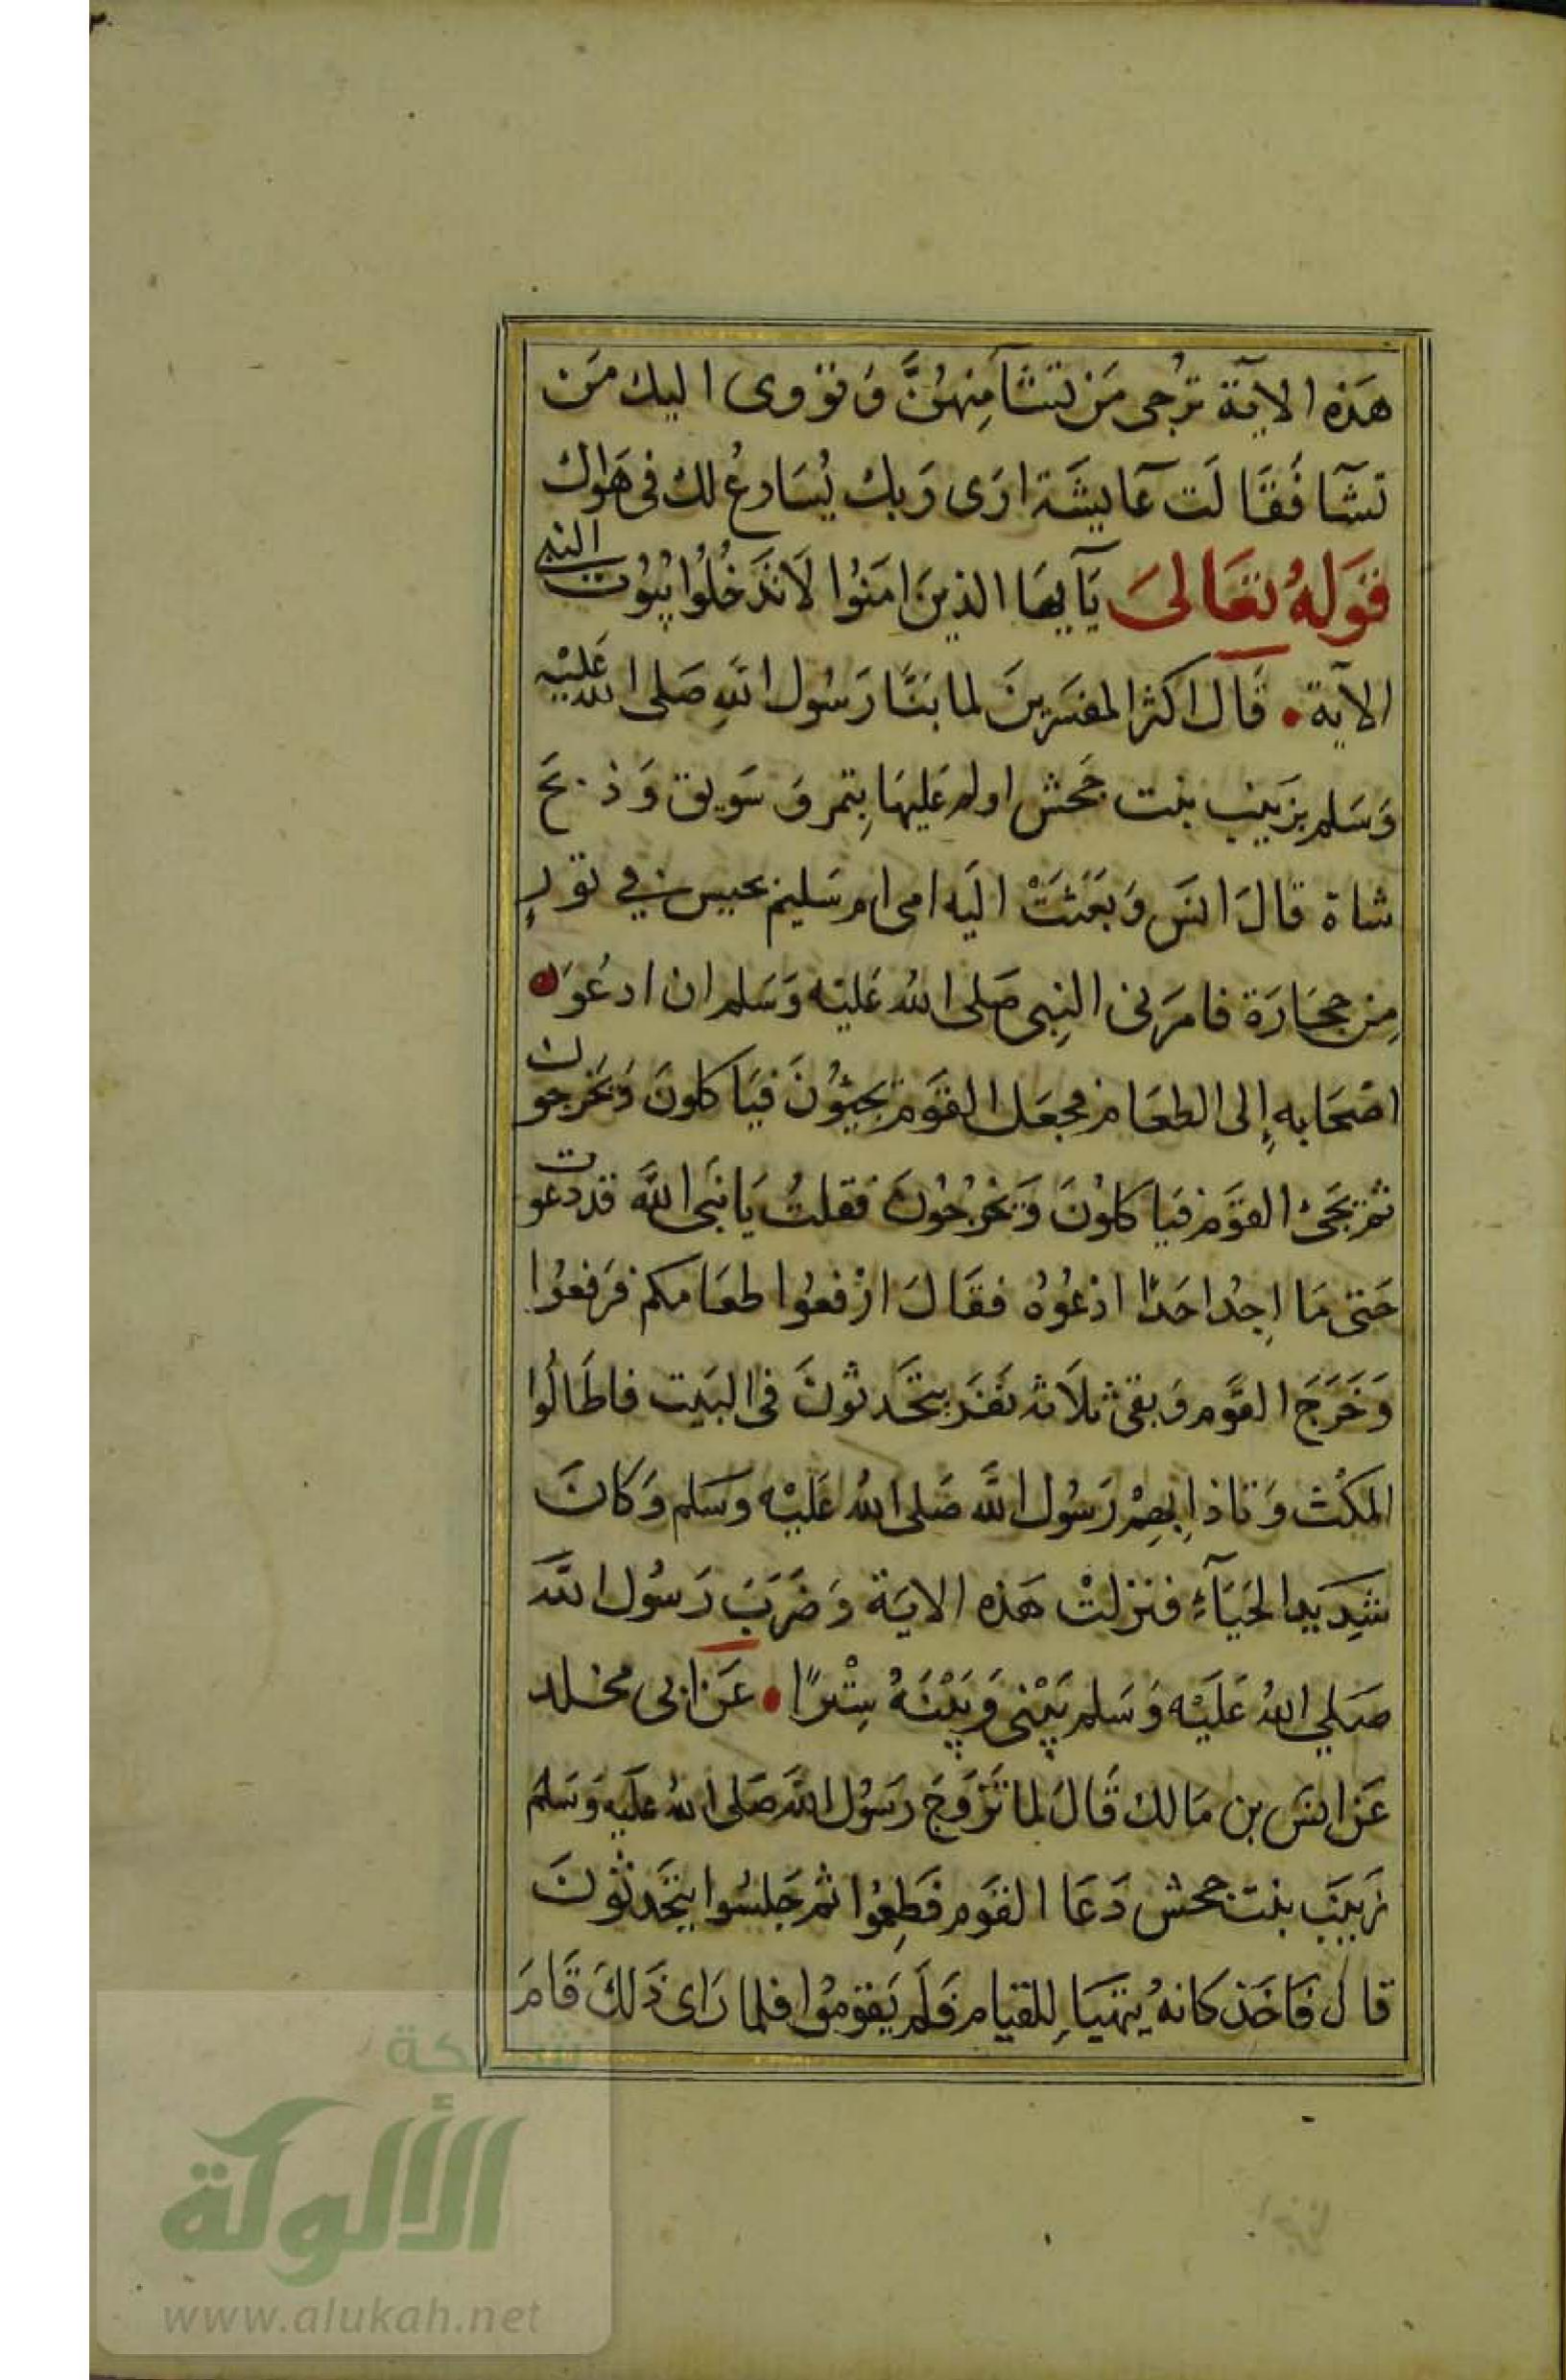 هَذِه الاية تُرجى مَن تشَآ مِنهُنَّ وَتؤوى اليك مَن
تشَآ فَقَالَت عَآيشَة ارَى رَبك يُسَارعُ لك فى هَوَاك
قَولهُ تعَالىَ يَآ ايهَا الذينَ امَنوُا لاَ تَدخُلُوا بُيُوت النبى
الآية • قَال اكثر المفسَرينَ لما بنَا رَسُول اللهِ صَلى الله عَليْه
وَسَلم بزَينب بنت جَحش اولم عَليهَا بِتمر وَ سَويق وَذبحَ
شاة قالَ انسَ وَبَعَثتْ اليَه امى ام سَليم بحيس في تورٍ
مِن حجَارَة فامَرَنى النبِى صَلى الله عَليَه وَسَلم ان ادعُوَا
اصْحَابه إلى الطعَام فجعَل القوَم يجيئُونَ فيَاكلونَ وَيَخرجون
ثم يَجئ القوَم فيَاكلوُنَ وَيَخرُجُونَ فقلتُ يَا نبَى اللهَ قد دعَوت
حَتى مَا اجِدُ احَدًا ادْعُوُهُ فقَالَ ارْفعوُا طعَامكم فرَفعُوا
وَخَرَجَ القَوم وَبقى ثلاَثه نفَر يتحَدثونَ فى البَيت فاطَالُوا
المكْث وَتاذا بِهِمْ رَسُول اللهَ صَلى اللهُ عَليْه وسَلم وَكانَ
شدِيَد الحيَآءِ فنزلتْ هَذه الايَة وَضَرَبَ رَسُول اللهَ
صَلي اللهُ عَليَه وَسَلم بَيْنى وَبَيْنَهُ سِتْرًا • عَن ابى مخلد
عَن انسَ بن مَالك قَالَ لما تزَوَجَ رَسوُل اللهَ صَلى اللهُ عَليَه وَسَلم
زَينَب بنت جحش دَعَا القوَم فَطعِمُوا ثم جَلسُوا يتحَدثونَ
قال فَاخَذ كانهُ يتهَيَا لِلقيام فَلَم يَقوُموُا فلما رَاى ذَلكَ قَامَ
شبكة
الألوكة
www.alukah.net